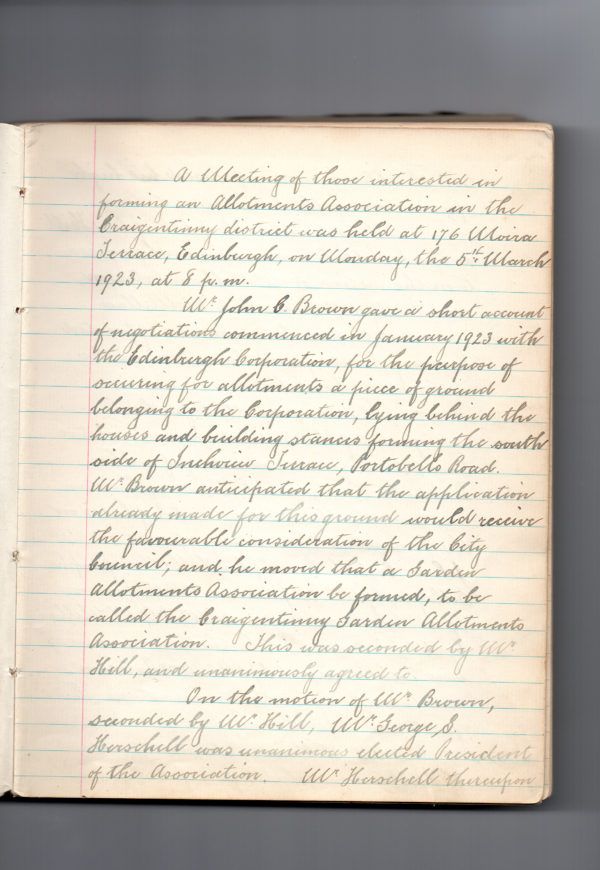 A Meeting of those interested in
forming an Allotments Association in the
Craigentinny district was held at 176 Moira
Terrace, Edinburgh, on Monday, the 5th March
1923, at 8 p.m.
Mr. John C. Brown gave a short account
of negotiations commenced in January 1923 with
the Edinburgh Corporation, for the purpose of
securing for allotments a piece of ground
belonging to the Corporation, lying behind the
houses and building stances forming the south
side of Inchview Terrace, Portobello Road.
Mr. Brown anticipated that the application
already made for this ground would receive
the favourable consideration of the City
Council; and he moved that a Garden
Allotments Association be formed, to be
called the Craigentinny Garden Allotments
Association. This was seconded by Mr.
Hill, and unanimously agreed to.
On the motion of Mr. Brown,
seconded by Mr. Hill, Mr. George S.
Herschell was unanimous elected President
of the Association. Mr. Herschell thereupon